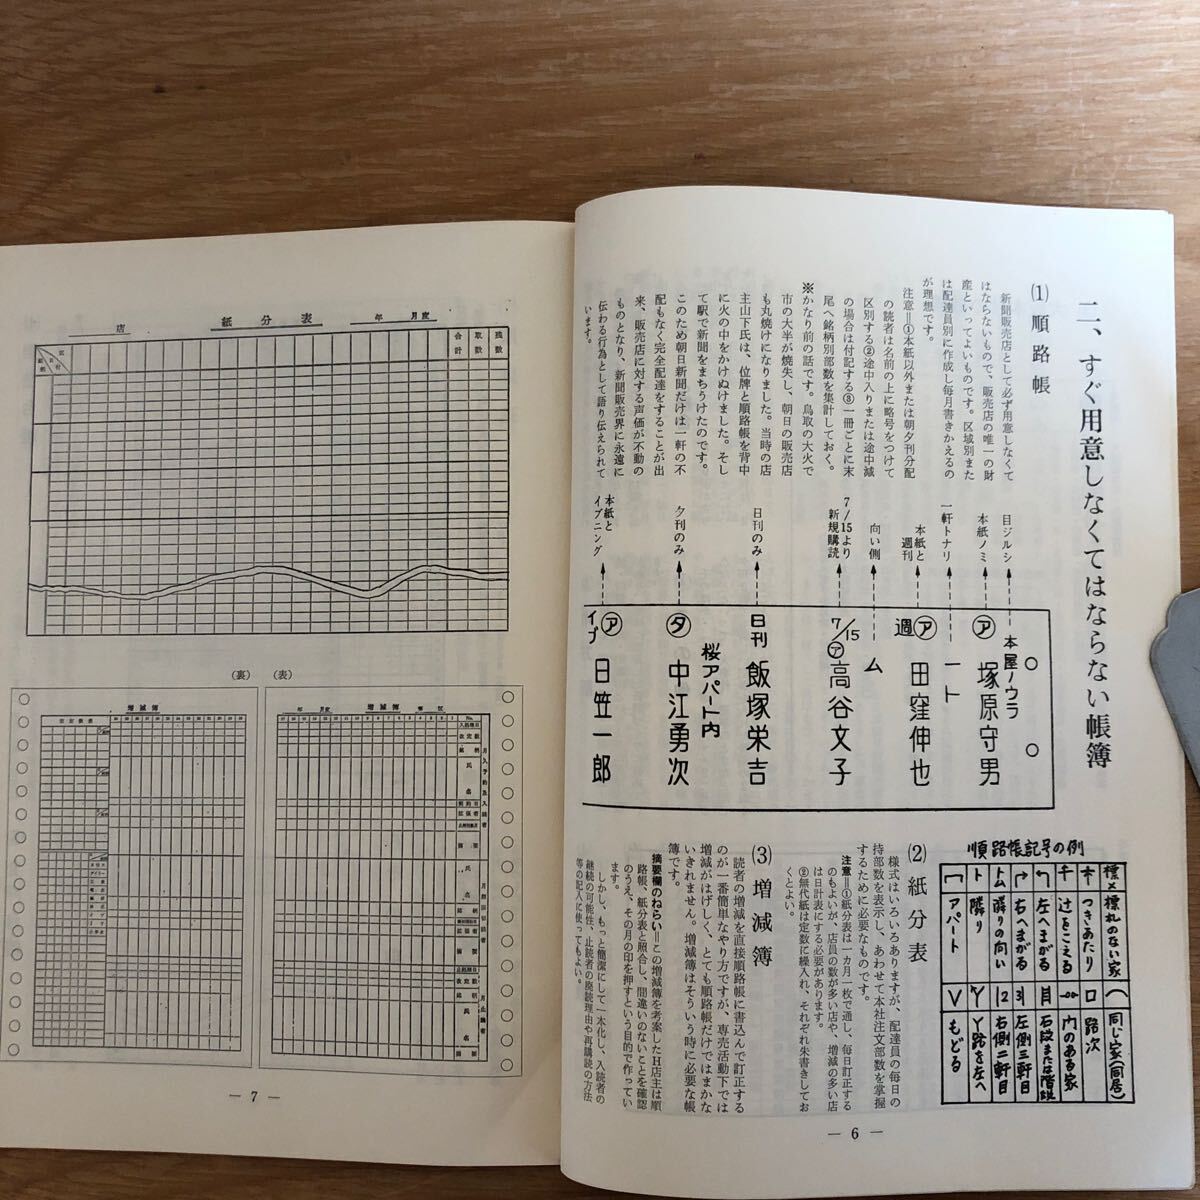 二、すぐ用意しなくてはならない帳簿
(1) 順路帳
新聞販売店として必ず用意しなくて
はならないもので、販売店の唯一の財
産といってよいものです。区域別また
は配達員別に作成し毎月書きかえるの
が理想です。
注意=①本紙以外または朝夕刊分配
の読者は名前の上に略号をつけて
区別する②途中入りまたは途中減
の場合は付記する③一冊ごとに末
尾へ銘柄別部数を集計しておく。
※かなり前の話です。鳥取の大火で
市の大半が焼失し、朝日の販売店
も丸焼けになりました。当時の店
主山下氏は、位牌と順路帳を背中
に火の中をかけぬけました。そし
て駅で新聞をまちうけたのです。
このため朝日新聞だけは一軒の不
配もなく完全配達をすることが出
来、販売店に対する声価が不動の
ものとなり、新聞販売界に永遠に
伝わる行為として語り伝えられて
います。
目ジルシ
本紙ノミ
一軒トナリ
本紙と
週刊
向い側
7/15より
新規購読
日刊のみ
夕刊のみ
本紙と
イブニング
本屋ノウラ
ア 塚原守男
一ト
週 ア 田窪伸也
ム
7/15 ア 高谷文子
日刊 飯塚栄吉
桜アパート内
夕 中江勇次
イブ ア 日笠一郎
順路帳記号の例
標〆 標札のない家
つきあたり
辻をこえる
左へまがる
右へまがる
隣りの向い
ト 隣り
アパート
同じ家(同居)
ロ 路次
門のある家
石段または階段
左側三軒目
右側二軒目
Y路を左へ
V もどる
(2) 紙分表
様式はいろいろありますが、配達員の毎日の
持部数を表示し、あわせて本社注文部数を掌握
するために必要なものです。
注意=①紙分表は一カ月一枚で通し、毎日訂正する
のもよいが、店員の数が多い店や、増減の多い店
は日計表にする必要があります。
②無代紙は定数に繰入れ、それぞれ朱書きしてお
くとよい。
(3) 増減簿
読者の増減を直接順路帳に書込んで訂正する
のが一番簡単なやり方ですが、専売活動下では
増減がはげしく、とても順路帳だけではまかな
いきれません。増減簿はそういう時に必要な帳
簿です。
摘要欄のねらい=この増減簿を考案したH店主は順
路帳、紙分表と照合し、間違いのないことを確認
のうえ、その月の印を押すという目的で作ってい
ます。
しかし、もっと簡潔にして一本化し、入読者の
継続の可能性、止読者の廃読理由や再購読の方法
等の記入に使ってもよい。
— 6 —
店 紙分表 年 月度
合計
取数
残数
(裏) (表)
増減簿
年 月度 増減簿 区
No.
氏名
摘要
— 7 —